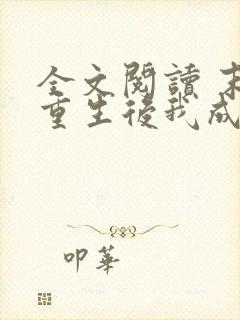 全文閱讀 末
重生後我成
叩華